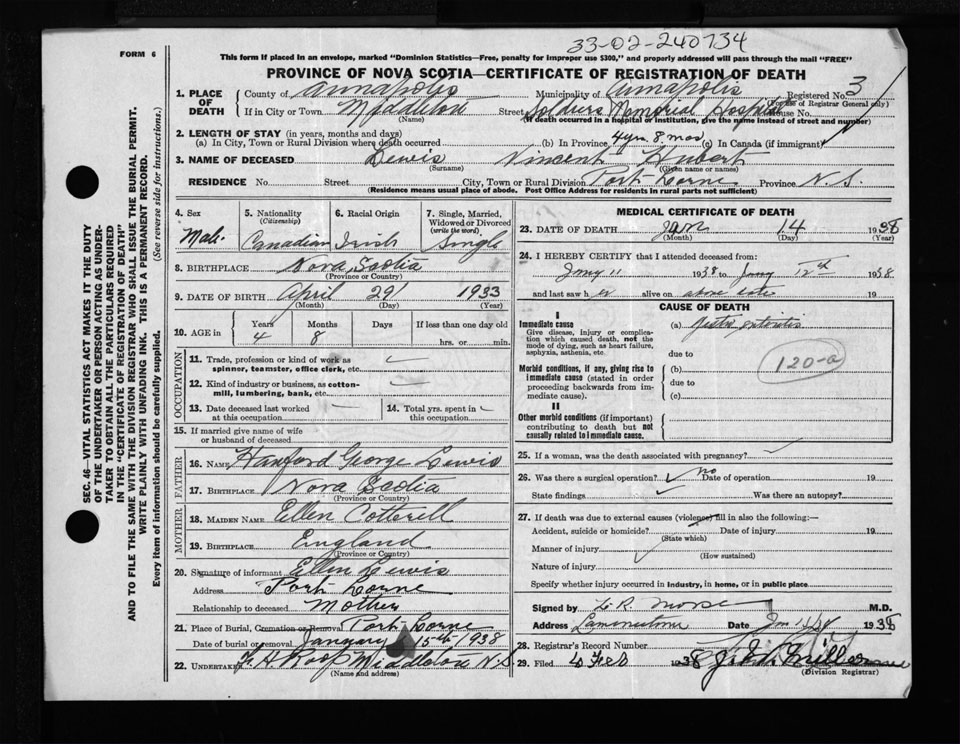 33-02-240734
FORM 6
This form if placed in an envelope, marked "Dominion Statistics—Free, penalty for improper use $300," and properly addressed will pass through the mail "FREE"
PROVINCE OF NOVA SCOTIA—CERTIFICATE OF REGISTRATION OF DEATH
1. PLACE OF DEATH
County of Annapolis Municipality of Annapolis Registered No. 3
(For use of Registrar General only)
If in City or Town Middleton Street Soldiers Memorial Hospital House No.
(Name) (If death occurred in a hospital or institution, give the name instead of street and number)
2. LENGTH OF STAY (in years, months and days)
(a) In City, Town or Rural Division where death occurred (b) In Province 4 yrs 8 mos (c) In Canada (if immigrant)
3. NAME OF DECEASED Lewis Vincent Hubert
(Surname) (Given name or names)
RESIDENCE No. Street City, Town or Rural Division Port Lorne Province N.S.
(Residence means usual place of abode. Post Office Address for residents in rural parts not sufficient)
4. Sex
Male
5. Nationality
(Citizenship)
Canadian
6. Racial Origin
Irish
7. Single, Married, Widowed or Divorced
(write the word)
Single
8. BIRTHPLACE Nova Scotia
(Province or Country)
9. DATE OF BIRTH April 29 1933
(Month) (Day) (Year)
10. AGE in Years Months Days If less than one day old
4 8 hrs. or min.
OCCUPATION
11. Trade, profession or kind of work as spinner, teamster, office clerk, etc.
12. Kind of industry or business, as cotton-mill, lumbering, bank, etc.
13. Date deceased last worked at this occupation
14. Total yrs. spent in this occupation
15. If married give name of wife or husband of deceased
FATHER
16. NAME Hanford George Lewis
17. BIRTHPLACE Nova Scotia
(Province or Country)
MOTHER
18. MAIDEN NAME Ellen Cotterell
19. BIRTHPLACE England
(Province or Country)
20. Signature of informant Ellen Lewis
Address Port Lorne
Relationship to deceased Mother
21. Place of Burial, Cremation or Removal Port Lorne
Date of burial or removal January 15th 1938
22. UNDERTAKER F H Roop Middleton N.S.
(Name and address)
MEDICAL CERTIFICATE OF DEATH
23. DATE OF DEATH Jan 14 1938
(Month) (Day) (Year)
24. I HEREBY CERTIFY that I attended deceased from:
Jany 11 1938 to Jany 12th 1938
and last saw h alive on above date 19
CAUSE OF DEATH
I
Immediate cause
Give disease, injury or complication which caused death, not the mode of dying, such as heart failure, asphyxia, asthenia, etc.
(a)
due to
Morbid conditions, if any, giving rise to immediate cause (stated in order proceeding backwards from immediate cause).
(b)
due to
(c)
120-a
II
Other morbid conditions (if important) contributing to death but not causally related to immediate cause.
25. If a woman, was the death associated with pregnancy?
26. Was there a surgical operation? no Date of operation 19
State findings Was there an autopsy?
27. If death was due to external causes (violence) fill in also the following:—
Accident, suicide or homicide? Date of injury 19
(State which)
Manner of injury
(How sustained)
Nature of injury
Specify whether injury occurred in industry, in home, or in public place
Signed by L R Morse M.D.
Address Lawrencetown Date Jan 1938
28. Registrar's Record Number
29. Filed 6 Feb 1938
(Division Registrar)
SEC. 46—VITAL STATISTICS ACT MAKES IT THE DUTY
OF THE UNDERTAKER OR PERSON ACTING AS UNDER-
TAKER TO OBTAIN ALL THE PARTICULARS REQUIRED
IN THE "CERTIFICATE OF REGISTRATION OF DEATH"
AND TO FILE THE SAME WITH THE DIVISION REGISTRAR WHO SHALL ISSUE THE BURIAL PERMIT.
WRITE PLAINLY WITH UNFADING INK. THIS IS A PERMANENT RECORD.
Every item of information should be carefully supplied. (See reverse side for instructions.)